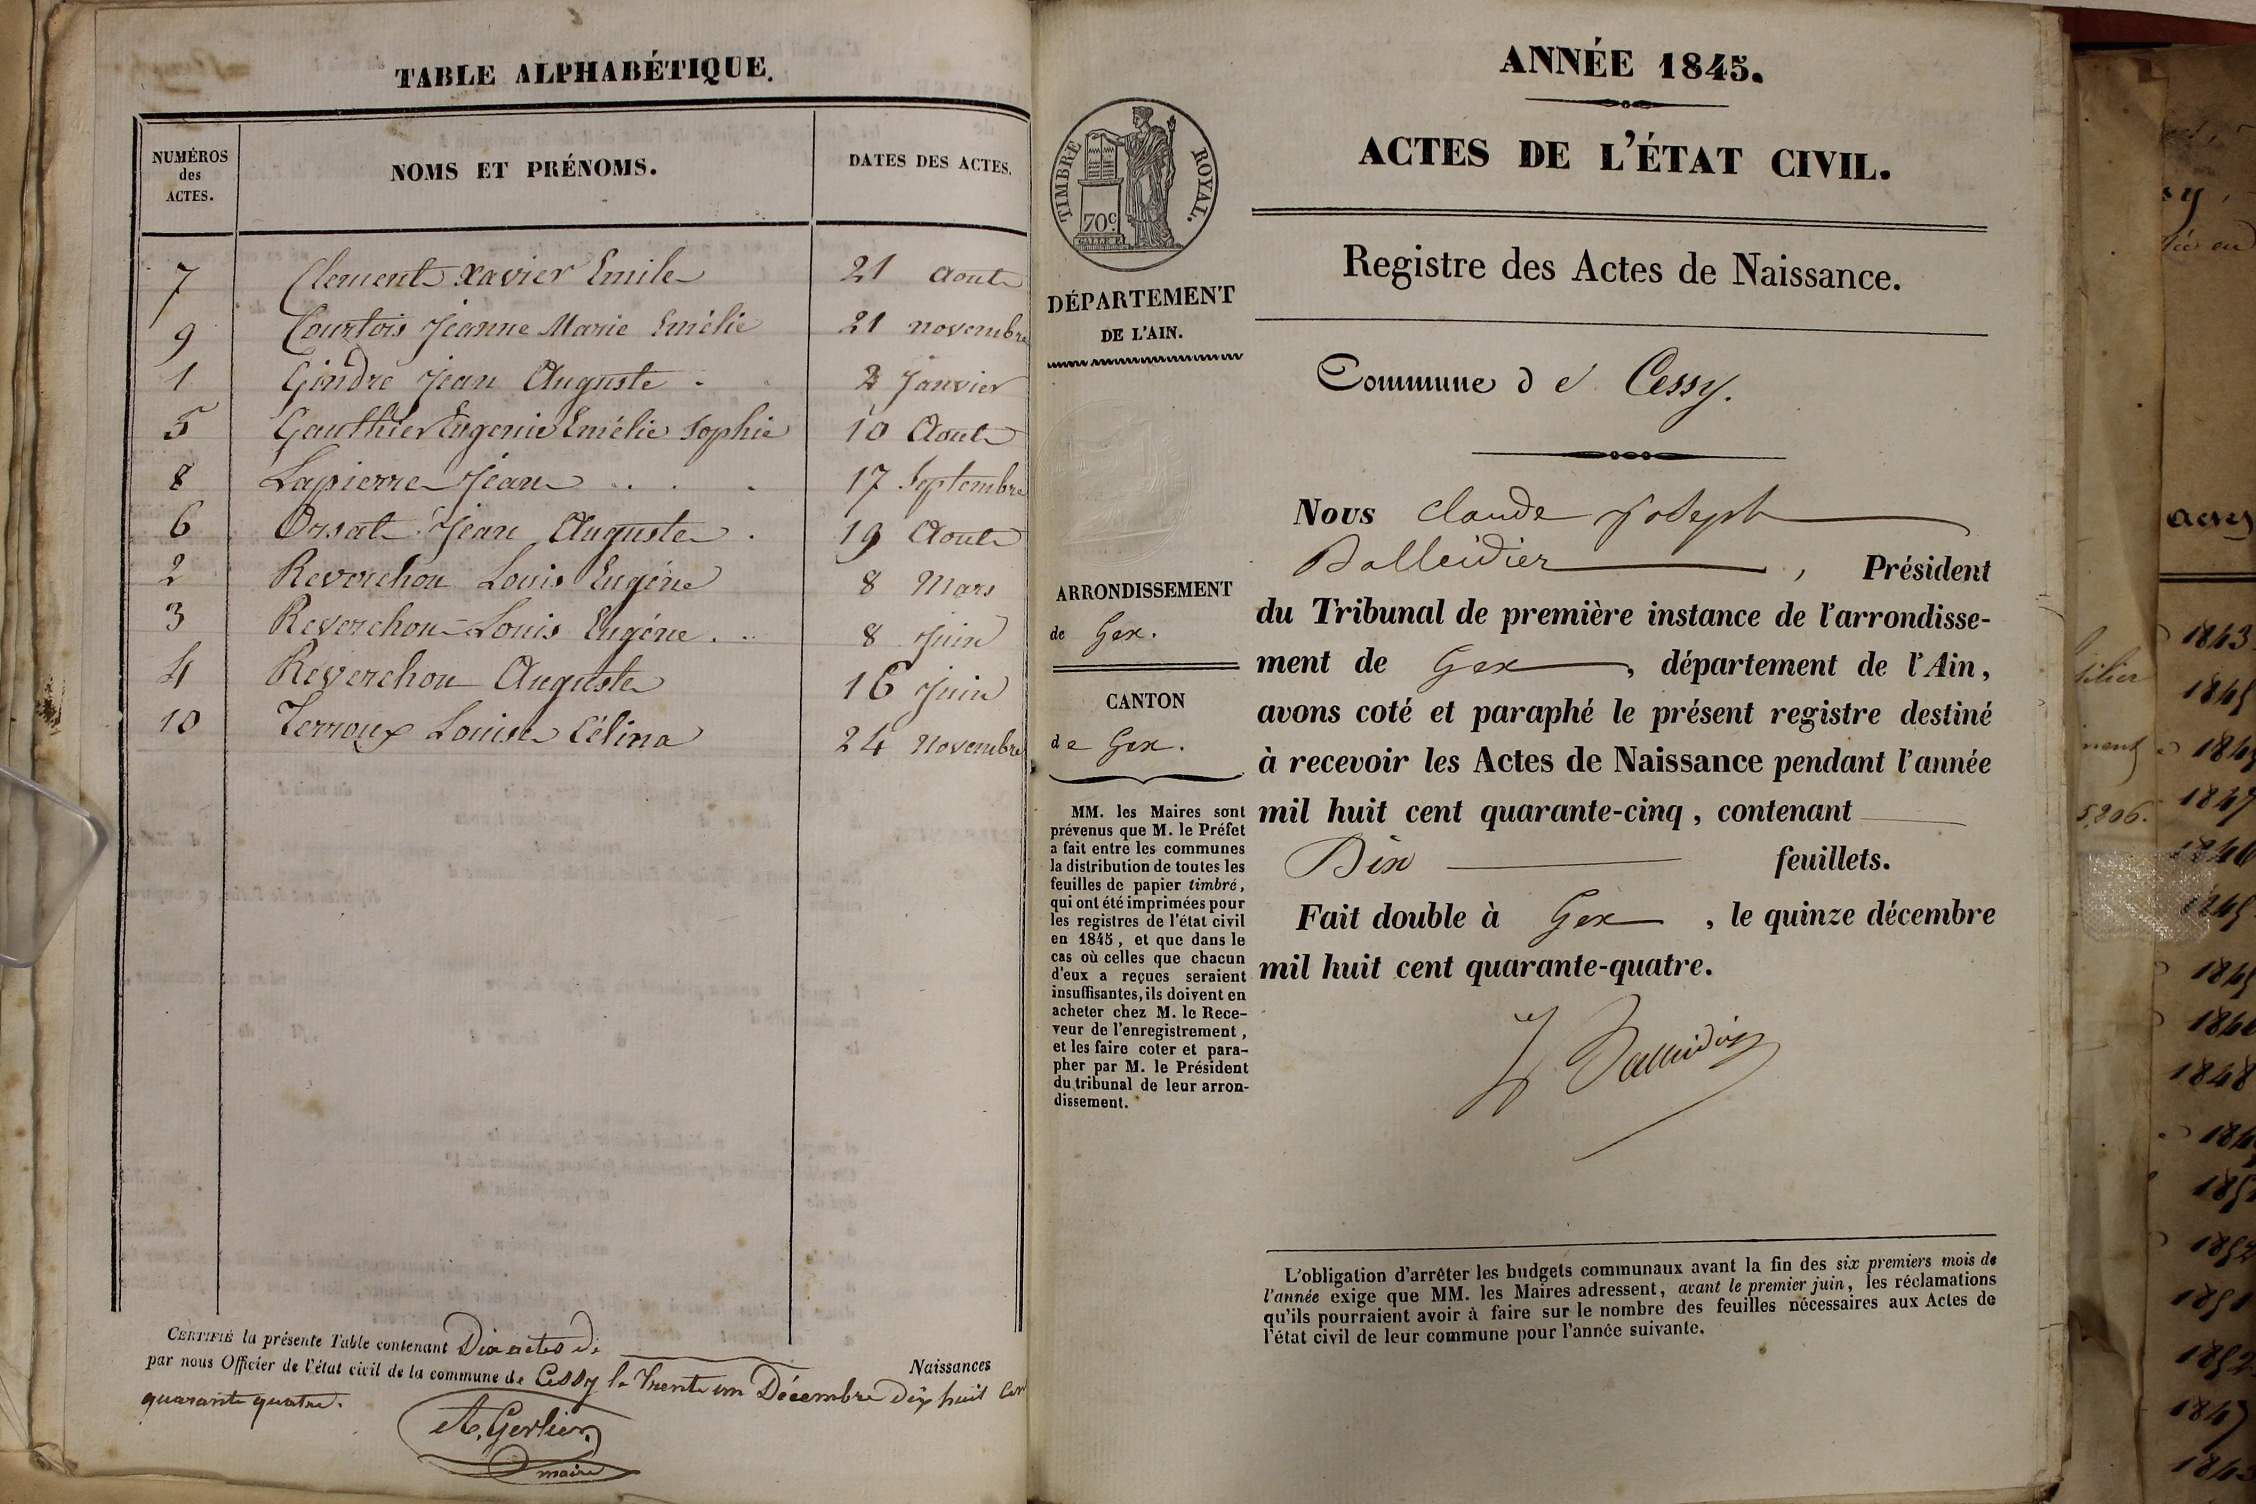 TABLE ALPHABÉTIQUE.
NUMÉROS des ACTES. NOMS ET PRÉNOMS. DATES DES ACTES.
7 Clement Xavier Emile 21 Aout
9 Courtois Jeanne Marie Emélie 21 novembre
1 Gindre Jean Auguste . 2 Janvier
5 Gauthier Eugenie Emélie Sophie 10 Aout
8 Lapierre Jean . . . 17 Septembre
6 Orsat Jean Auguste . 19 Aout
2 Reverchon Louis Eugéne 8 Mars
3 Reverchon Louis Eugéne . .. 8 Juin
4 Reverchon Auguste 16 Juin
10 Terroux Louise Célina 24 Novembre
CERTIFIÉ la présente Table contenant Dix actes de Naissances
par nous Officier de l'état civil de la commune de Cessy le Trente un Décembre dix huit Cent
quarante quatre.
A. Gerlier
maire
ANNÉE 1845.
TIMBRE ROYAL.
70c
ACTES DE L'ÉTAT CIVIL.
Registre des Actes de Naissance.
DÉPARTEMENT
DE L'AIN.
Commune de Cessy.
ARRONDISSEMENT
de Gex.
CANTON
de Gex.
MM. les Maires sont
prévenus que M. le Préfet
a fait entre les communes
la distribution de toutes les
feuilles de papier timbré,
qui ont été imprimées pour
les registres de l'état civil
en 1845, et que dans le
cas où celles que chacun
d'eux a reçues seraient
insuffisantes, ils doivent en
acheter chez M. le Rece-
veur de l'enregistrement,
et les faire coter et para-
pher par M. le Président
du tribunal de leur arron-
dissement.
Nous Claude Joseph
Balleidier, Président
du Tribunal de première instance de l'arrondisse-
ment de Gex, département de l'Ain,
avons coté et paraphé le présent registre destiné
à recevoir les Actes de Naissance pendant l'année
mil huit cent quarante-cinq, contenant
Dix feuillets.
Fait double à Gex, le quinze décembre
mil huit cent quarante-quatre.
Balleidier
L'obligation d'arrêter les budgets communaux avant la fin des six premiers mois de
l'année exige que MM. les Maires adressent, avant le premier juin, les réclamations
qu'ils pourraient avoir à faire sur le nombre des feuilles nécessaires aux Actes de
l'état civil de leur commune pour l'année suivante.
1843